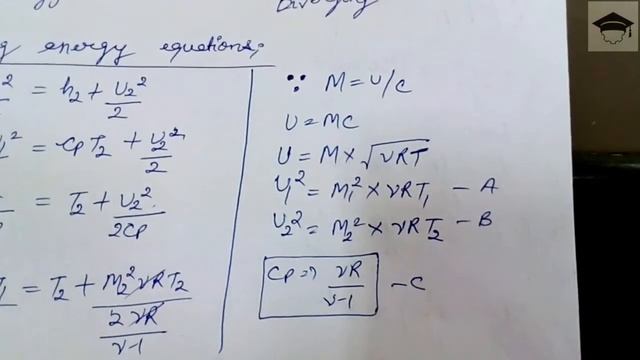 Diverging
energy equations;
= h2 + U2²/2
= CpT2 + U2²/2
= T2 + U2²/2Cp
= T2 + M2²γRT2 / (2γR/γ-1)
∵ M = U/C
U = MC
U = M × √γRT
U1² = M1² × γRT1 - A
U2² = M2² × γRT2 - B
Cp ⇒ γR/γ-1 - C